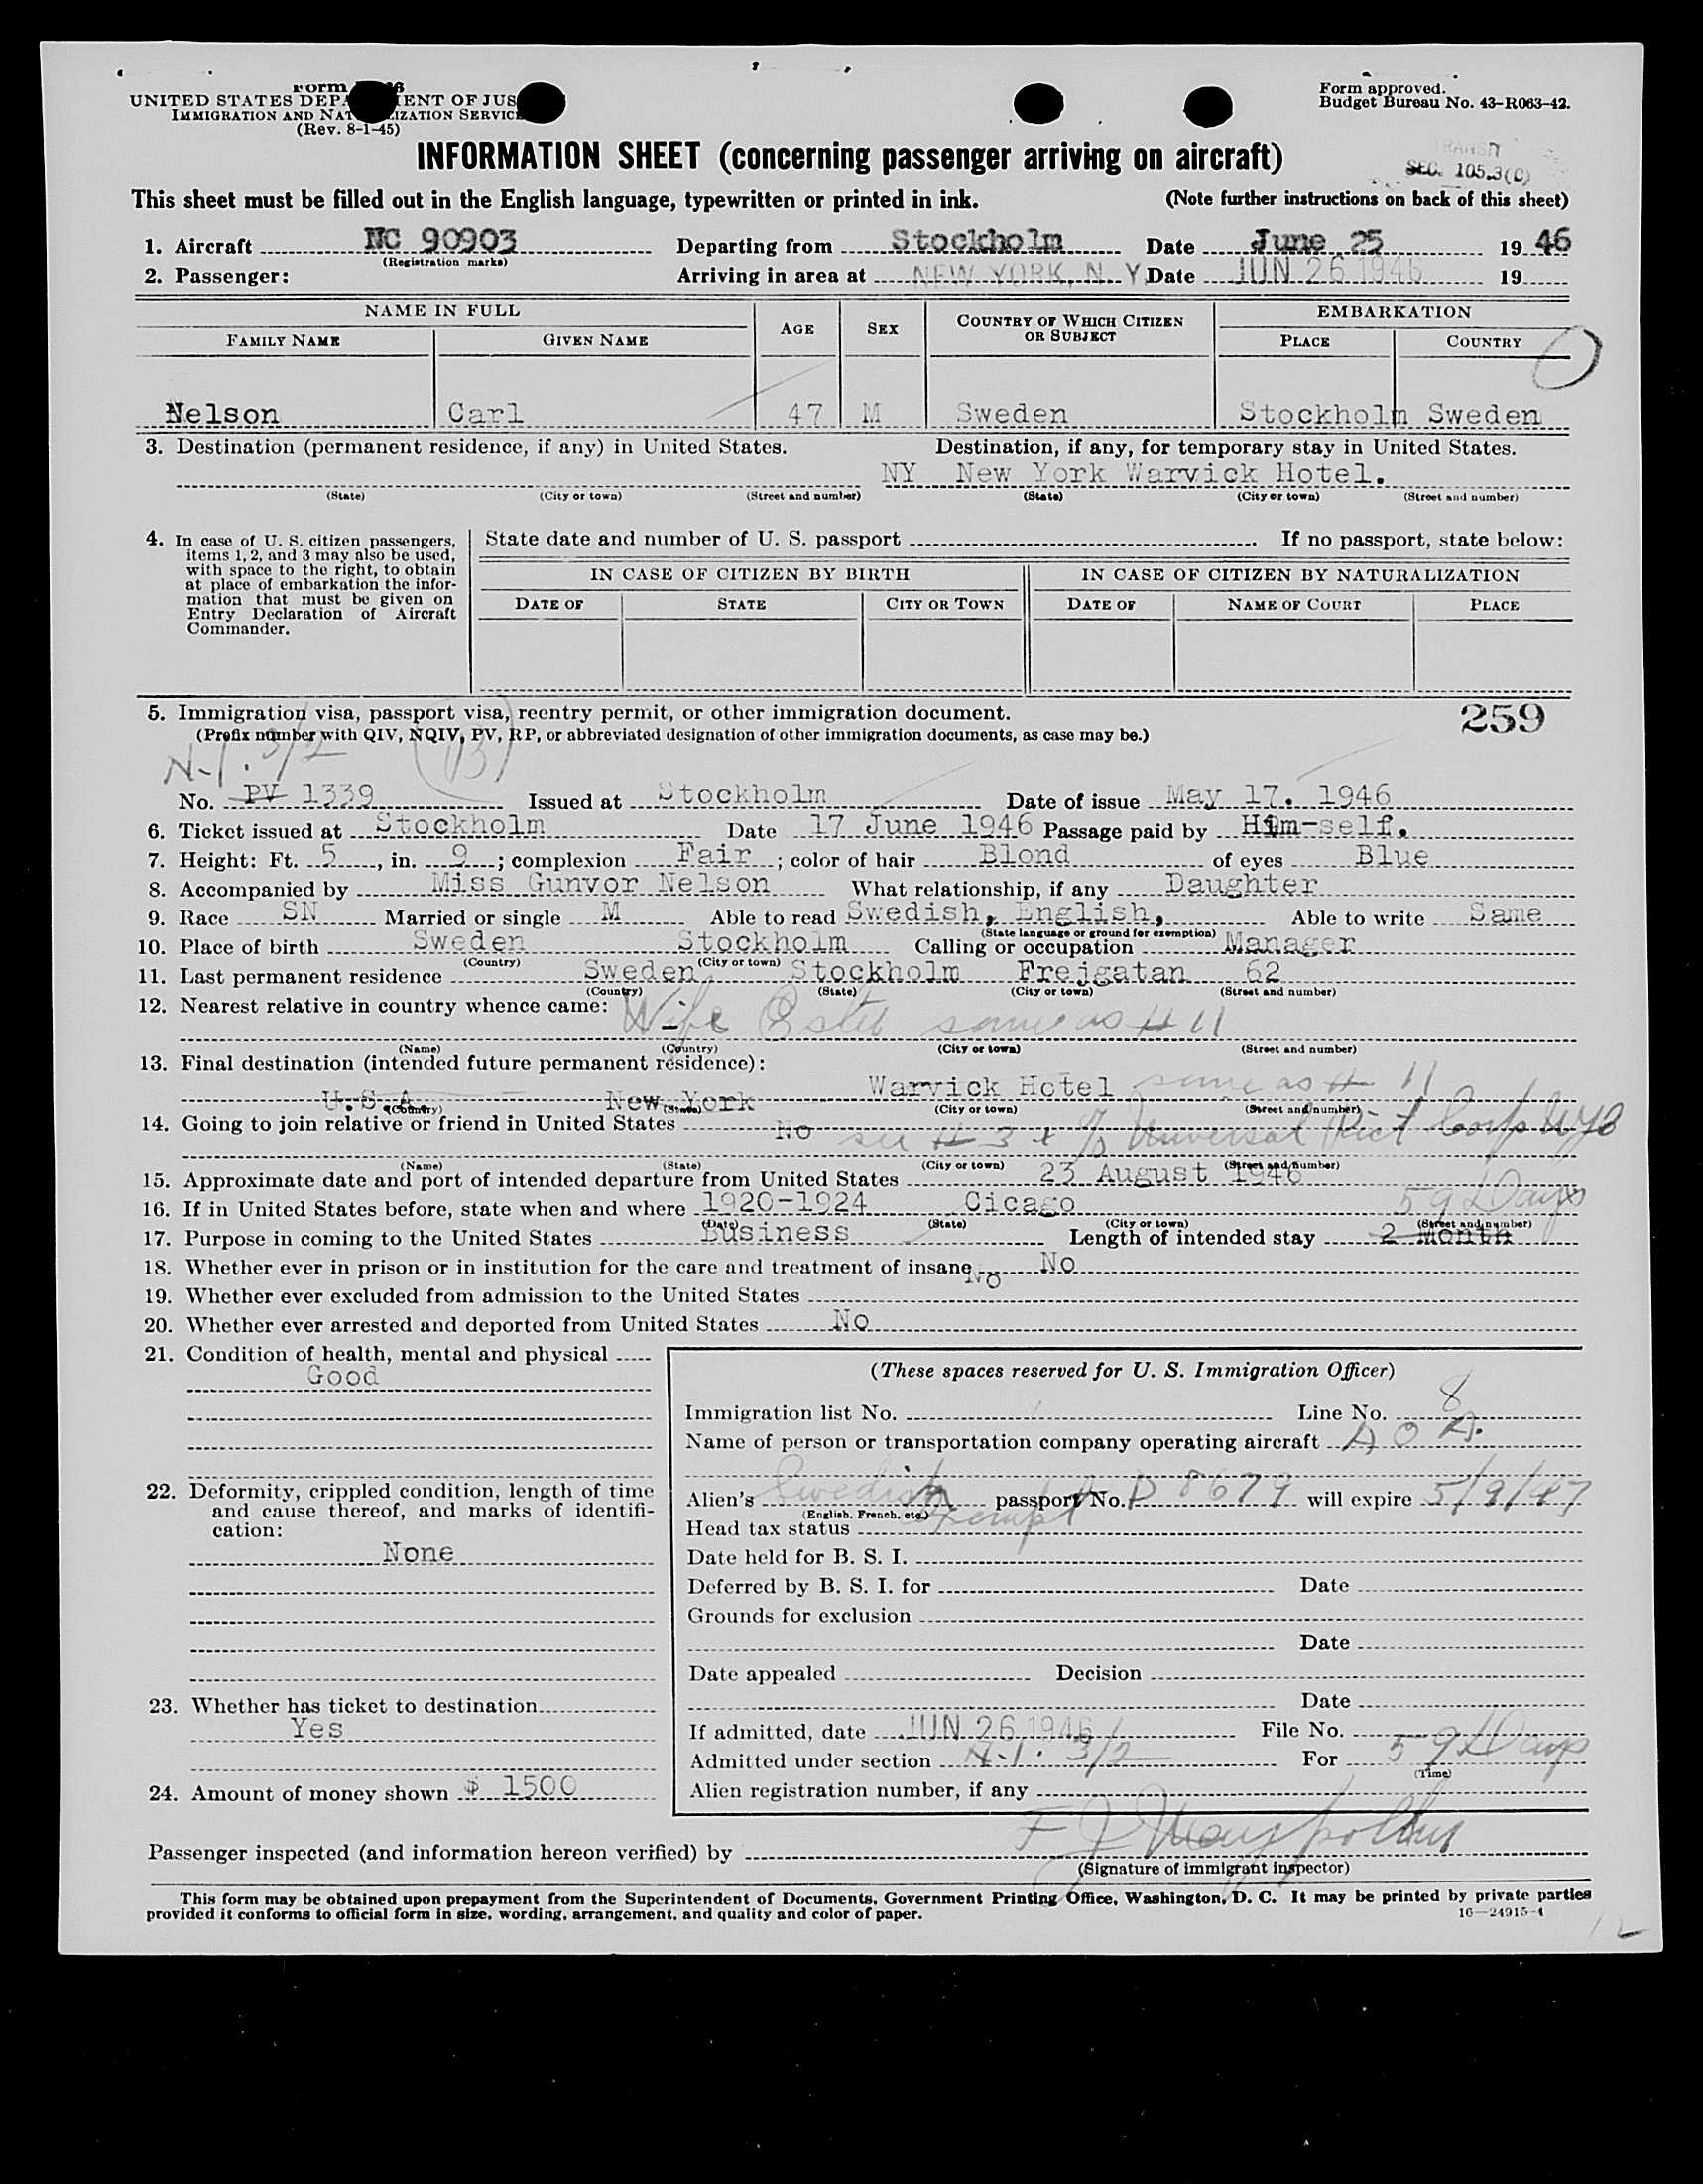 Form
UNITED STATES DEPA ENT OF JUS
IMMIGRATION AND NAT IZATION SERVICE
(Rev. 8-1-45)
Form approved.
Budget Bureau No. 43-R063-42.
INFORMATION SHEET (concerning passenger arriving on aircraft)
SEC. 105.3(C)
This sheet must be filled out in the English language, typewritten or printed in ink. (Note further instructions on back of this sheet)
1. Aircraft NC 90903 Departing from Stockholm Date June 25 1946
(Registration marks)
2. Passenger: Arriving in area at NEW YORK, N. Y. Date JUN 26 1946 19
NAME IN FULL AGE SEX COUNTRY OF WHICH CITIZEN OR SUBJECT EMBARKATION
FAMILY NAME GIVEN NAME PLACE COUNTRY
Nelson Carl 47 M Sweden Stockholm Sweden
3. Destination (permanent residence, if any) in United States. Destination, if any, for temporary stay in United States.
NY New York Warvick Hotel.
(State) (City or town) (Street and number) (State) (City or town) (Street and number)
4. In case of U. S. citizen passengers,
items 1, 2, and 3 may also be used,
with space to the right, to obtain
at place of embarkation the infor-
mation that must be given on
Entry Declaration of Aircraft
Commander.
State date and number of U. S. passport . If no passport, state below:
IN CASE OF CITIZEN BY BIRTH IN CASE OF CITIZEN BY NATURALIZATION
DATE OF STATE CITY OR TOWN DATE OF NAME OF COURT PLACE
5. Immigration visa, passport visa, reentry permit, or other immigration document. 259
(Prefix number with QIV, NQIV, PV, RP, or abbreviated designation of other immigration documents, as case may be.)
No. PV 1339 Issued at Stockholm Date of issue May 17. 1946
6. Ticket issued at Stockholm Date 17 June 1946 Passage paid by Him-self.
7. Height: Ft. 5, in. 9; complexion Fair; color of hair Blond of eyes Blue
8. Accompanied by Miss Gunvor Nelson What relationship, if any Daughter
9. Race SN Married or single M Able to read Swedish, English, Able to write Same
(State language or ground for exemption)
10. Place of birth Sweden Stockholm Calling or occupation Manager
(Country) (City or town)
11. Last permanent residence Sweden Stockholm Frejgatan 62
(Country) (State) (City or town) (Street and number)
12. Nearest relative in country whence came: Wife Ester same as # 11
(Name) (Country) (City or town) (Street and number)
13. Final destination (intended future permanent residence):
U.S.A. New York Warvick Hotel same as # 11
(Country) (State) (City or town) (Street and number)
14. Going to join relative or friend in United States No see # 3 + % Universal Pict Corp NYC
(Name) (State) (City or town) (Street and number)
15. Approximate date and port of intended departure from United States 23 August 1946
16. If in United States before, state when and where 1920-1924 Cicago 59 Days
(Date) (State) (City or town) (Street and number)
17. Purpose in coming to the United States Business Length of intended stay 2 Month
18. Whether ever in prison or in institution for the care and treatment of insane No
19. Whether ever excluded from admission to the United States No
20. Whether ever arrested and deported from United States No
21. Condition of health, mental and physical
Good
22. Deformity, crippled condition, length of time
and cause thereof, and marks of identifi-
cation:
None
23. Whether has ticket to destination
Yes
24. Amount of money shown $ 1500
(These spaces reserved for U. S. Immigration Officer)
Immigration list No. Line No. 8
Name of person or transportation company operating aircraft A O A.
Alien's Swedish passport No. D 8679 will expire 5/9/47
(English, French, etc.)
Head tax status Exempt
Date held for B. S. I.
Deferred by B. S. I. for Date
Grounds for exclusion
Date
Date appealed Decision
Date
If admitted, date JUN 26 1946 File No.
Admitted under section 3/2 For 59 Days
(Time)
Alien registration number, if any
Passenger inspected (and information hereon verified) by
(Signature of immigrant inspector)
This form may be obtained upon prepayment from the Superintendent of Documents, Government Printing Office, Washington, D. C. It may be printed by private parties
provided it conforms to official form in size, wording, arrangement, and quality and color of paper.
16—24915-1